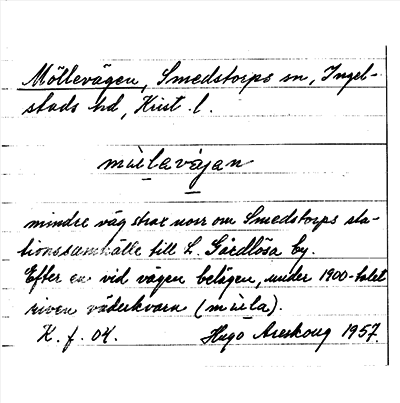 Möllevägen, Smedstorps sn, Ingel-
stads hd, Krist. l.
mùlavägan
mindre väg strax norr om Smedstorps sta-
tionssamhälle till L. Gärdlösa by.
Efter en vid vägen belägen, under 1900-talet
riven väderkvarn (mùla).
K. f. 04. Hugo Areskoug 1957.